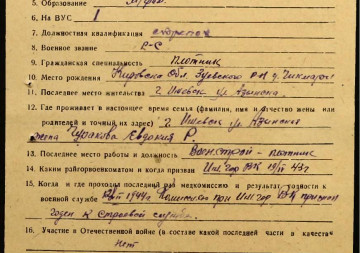 5. Образование
6. На ВУС 1
7. Должностная квалификация стрелок
8. Военное звание Р-С
9. Гражданская специальность Плотник
10. Место рождения Кировская Обл. Зуевского р-н д. Чикмари
11. Последнее место жительства г. Ижевск ул Азинска
12. Где проживает в настоящее время семья (фамилия, имя и отчество жены или
родителей и точный их адрес) г. Ижевск ул Азинска
жена Чуракова Евдокия Р.
13. Последнее место работы и должность плотник
14. Каким райгорвоенкоматом и когда призван Иж. Гор ВК 43 г
15. Когда и где проходил последний раз медкомиссию и результат годности к
военной службе 1944 г Комиссия при Иж. гор ВК признан
годен к строевой службе.
16. Участие в Отечественной войне (в составе какой последней части в качеств
нет